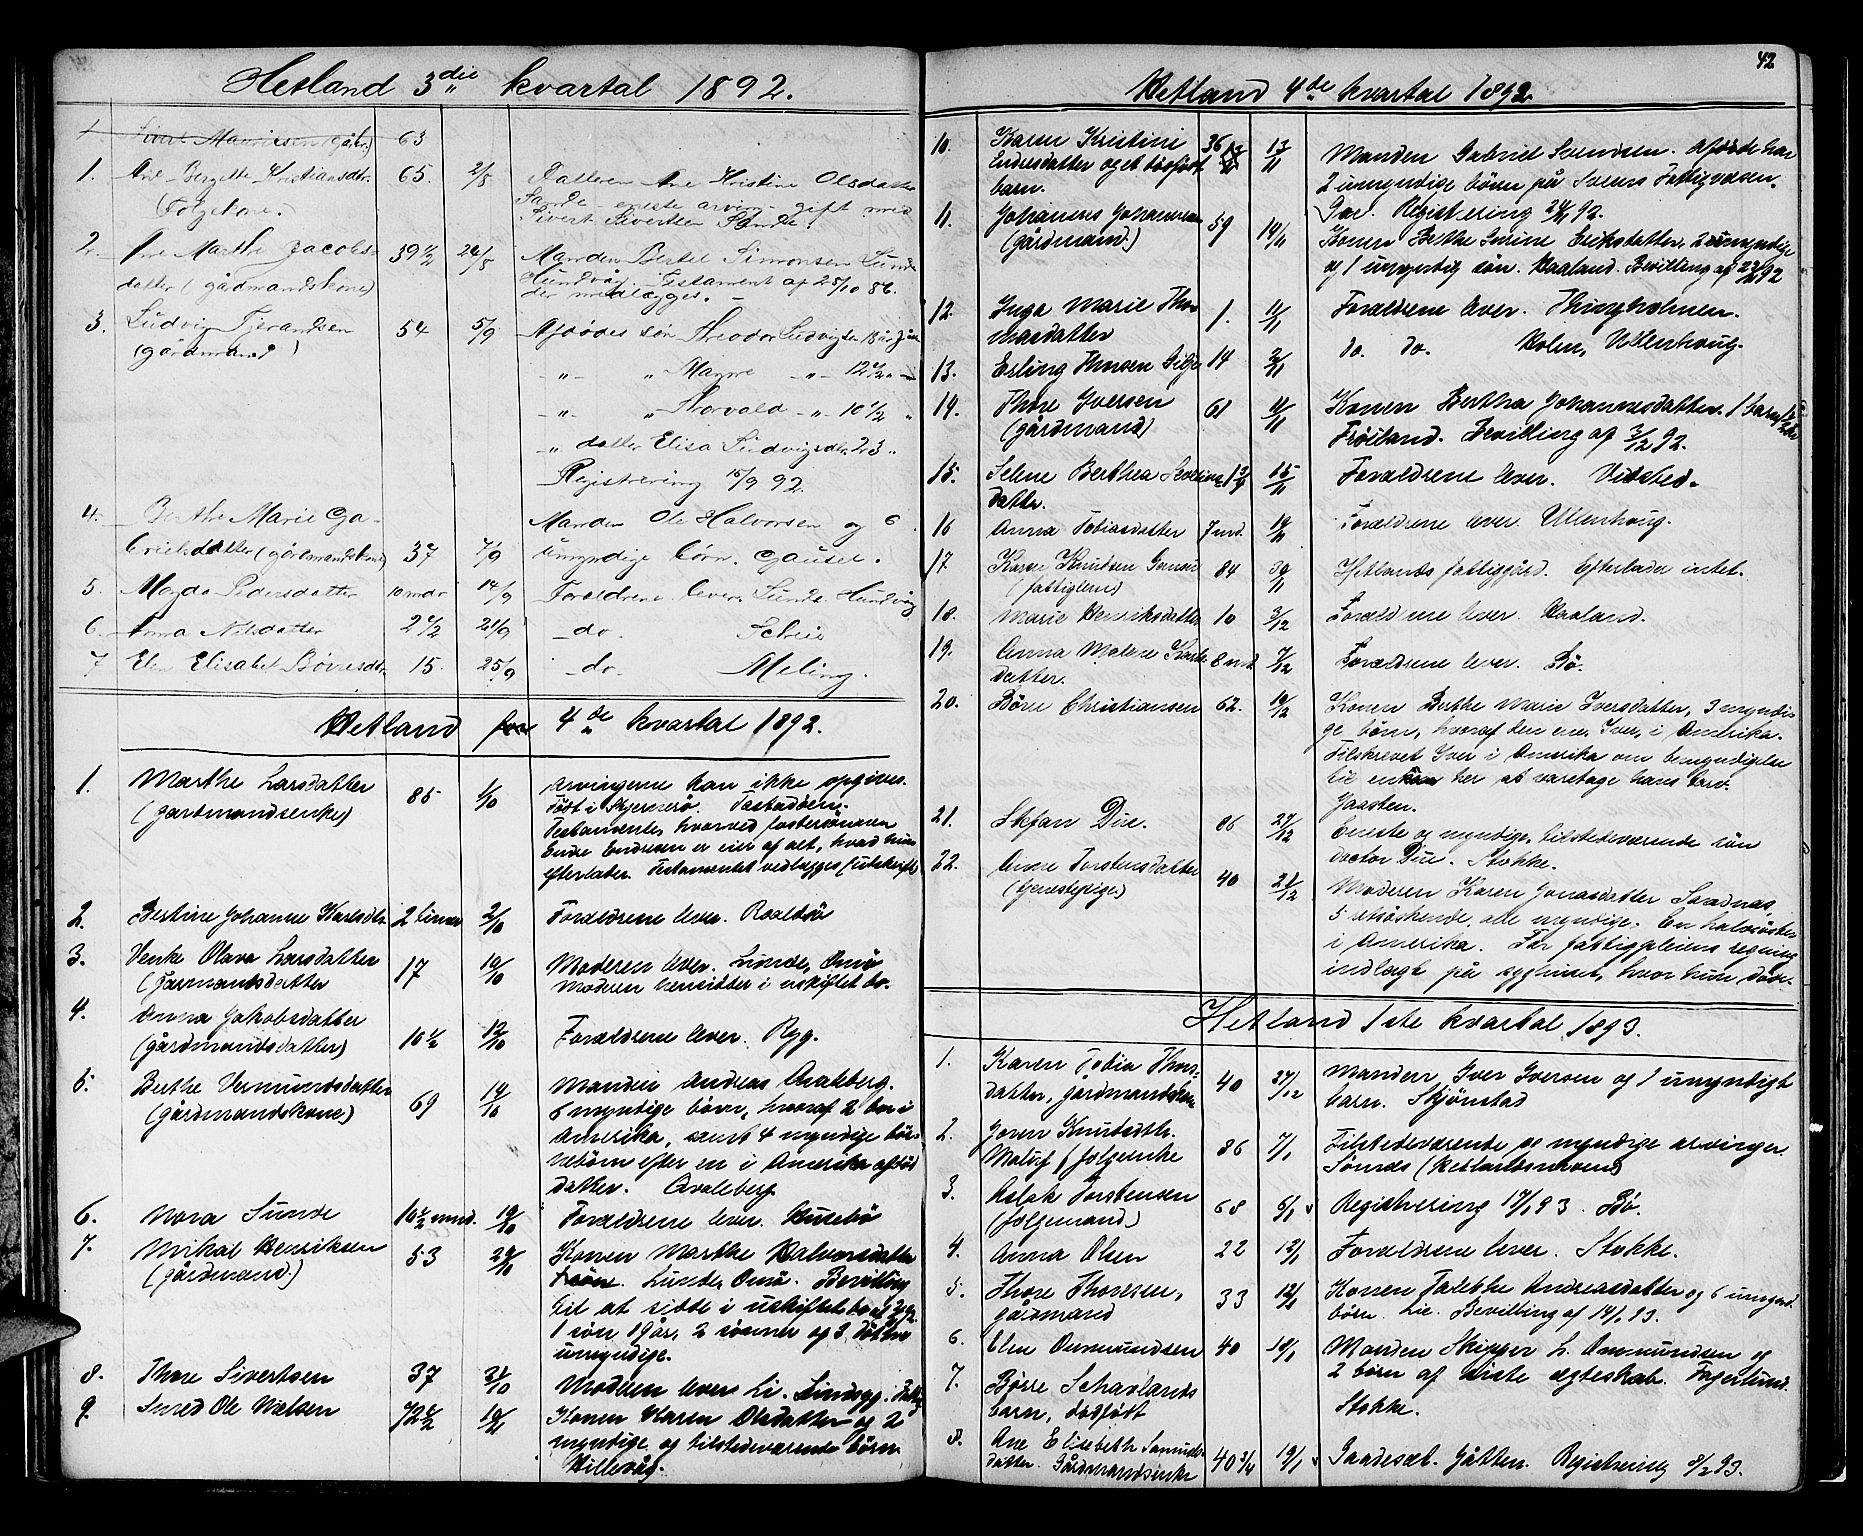 Hetland 3die kvartal 1892.
1 Mauritsen (gbr.) 63
1. Ane Bergitte Kristiansdtr. 65. 2/8 Datteren Ane Kristine Olsdatter
(Følgekone.) Sande - eneste arving - gift med
Sivert Sivertsen Sande.
2. Ane Marthe Jacobs- 39 1/2 24/8 Manden Bertel Simonsen Sunde
datter (gårdmandskone) Hundvåg. Testament af 25/10 86.
der medlægges.
3. Ludvig Tjerandsen 54 5/9 Afdødes søn Theodor Ludvigsen 18 år
(gårdmand)
-"- " Magne -"- 12 1/2 "
-"- " Thorvald -"- 10 1/2 "
-"- datter Elisa Ludvigsdtr. 23 "
Registrering 15/9 92.
4. Berthe Marie Ga- Manden Ole Halvorsen og 6
brielsdatter (gårdmandskone) 37 7/9 umyndige børn. Gausel.
5. Magda Pedersdatter 10 mdr 14/9 Forældrene lever. Sunde Hundvåg
6. Anna Nilsdatter 2 1/2 21/9 do. Scheie
7 Elen Elisabet Børresdtr. 15. 25/9 do. Meling.
Hetland for 4de kvartal 1892.
1. Marthe Larsdatter 85 1/10 Arvingerne kan ikke opgives.
(gårdmandsenke) Født i Skjernerø. Tastadøen.
Testamente, hvorved fostersønnen
Endre Endresen er eier af alt, hvad hun
efterlader. Testamentet vedlægges (utskrift)
2. Bertine Johanne Karlsdtr. 2 timer 2/10 Forældrene lever. Roaldsø
3. Venke Olava Larsdatter 17 10/10 Moderen lever. Lunde, Omø
(gårmandsdatter Moderen hensitter i uskiftet bo.
4. Anna Jakobsdatter
(gårdmandsdatter) 10 1/2 12/10 Forældrene lever. Ryg.
5. Berthe Vermundsdatter 69 14/10 Manden Andreas Auglberg.
(gårdmandskone) 6 myndige børn, hvoraf 2 bor i
Amerika, samt 4 myndige bør-
nebørn efter en i Amerika afdød
datter.
6. Nora Sunde 10 1/2 mnd. 19/10 Forældrene lever. Husebø
7. Mikal Henriksen 53 29/10 Konen Marthe Halvorsdatter
(gårdmand.) Lunde, Omø. Bevilling
til at sidde i uskiftet bo
1 søn 19 år, 2 sønner og 3 døttre
umyndige.
8. Thore Sivertsen 37 31/10 Moderen lever
9. Sored Ole Nielsen 72 1/2 10/11 Konen Karen Olsdatter og 2
myndige og tilstedeværende børn
Hillevåg.
42
Hetland 4de kvartal 1892.
10. Karen Kristine 36 13/11 Manden Gabriel Svendsen. Afdøde har
Endresdatter og et dødfødt 2 umyndige børn på Sveens Fattigvæsen.
barn. Registrering 24/11 92.
11. Johannes Johannesen 59 14/11 Konen Berthe Serine Eriksdatter, 2 umyndige
(gårdmand.) og 1 umyndig søn. Haaland. Bevilling af
12. Inga Marie Tho- 1. 11/11 Forældrene lever. Thingholmen.
masdatter
13. Erling Hansen Gilje 14 2/11 do. do. Holm, Ullenhoug.
14. Thore Iversen 61 11/11 Konen Bertha Johannesdatter. 1 barn
(gårdmand) Frøiland. Bevilling af 3/2 92.
15. Selene Berthea Severins- 15/11 Forældrene lever. Vidsted.
datter.
16 Anna Tobiasdatter 7 md. 19/11 Forældrene lever. Ullenhoug.
17 Karen Knudsen 84 30/11 Hetlands fattiggård. Efterlader intet.
(fattiglem)
18. Marie Henriksdatter 10 3/12 Forældrene lever. Haaland.
19. Anna Malene Karls- 8 md. 7/12 Forældrene lever. Bø.
datter.
20. Børre Christiansen 62. 10/12 Konen Berthe Marie Iversdatter, 3 myndi-
ge børn, hvoraf den ene, Iver, i Amerika.
Tilskrevet Iver i Amerika om bemyndigelse
til enkan her at varetage hans tarv.
Gausten.
21. Stefan Due. 86 27/12 Eneste og myndige, tilstedeværende søn
doctor Due. Stokke.
22. Anne Torstensdatter 40 21/12 Moderen Karen Jonasdatter
(tjenestepige) 5 retsøskende, alle myndige. En halvsøster
i Amerika. For fattigpleiens regning
indlagt på sygehuset, hvor hun døde.
Hetland 1ste kvartal 1893.
1. Karen Tobia Thors- 40 27/12 Manden Iver Iversen og 1 umyndigt
datter, gårdmandskone barn. Skjønstad
2. Joren Knutsdtr. 86 7/1 Tilstedeværende og myndige arvinger.
følgeenke Sømes (Hetlandsmarken)
3. Aslak Torstensen 68 6/1 Registrering 17/1 93. Bø.
(følgemand)
4. Anna Olsen 22 12/1 Forældrene lever. Stokke.
5. Thore Thoresen, 33 12/1 Konen Talethe Andreasdatter og 6 umynd.
gårdmand børn. Lie. Bevilling af 14/1 93.
6. Elen Ommundsen 40 10/1 Manden Skipper L. Ommundsen og
2 børn af siste ægteskab. Fagerlund.
7. Børre Schavlands
barn, dødfødt Stokke.
8. Ane Elisebeth Samuels-
datter. Gårdmandsenke 40 3/4 19/1 Gaardesæl. Gåtten. Registrering 8/2 93.